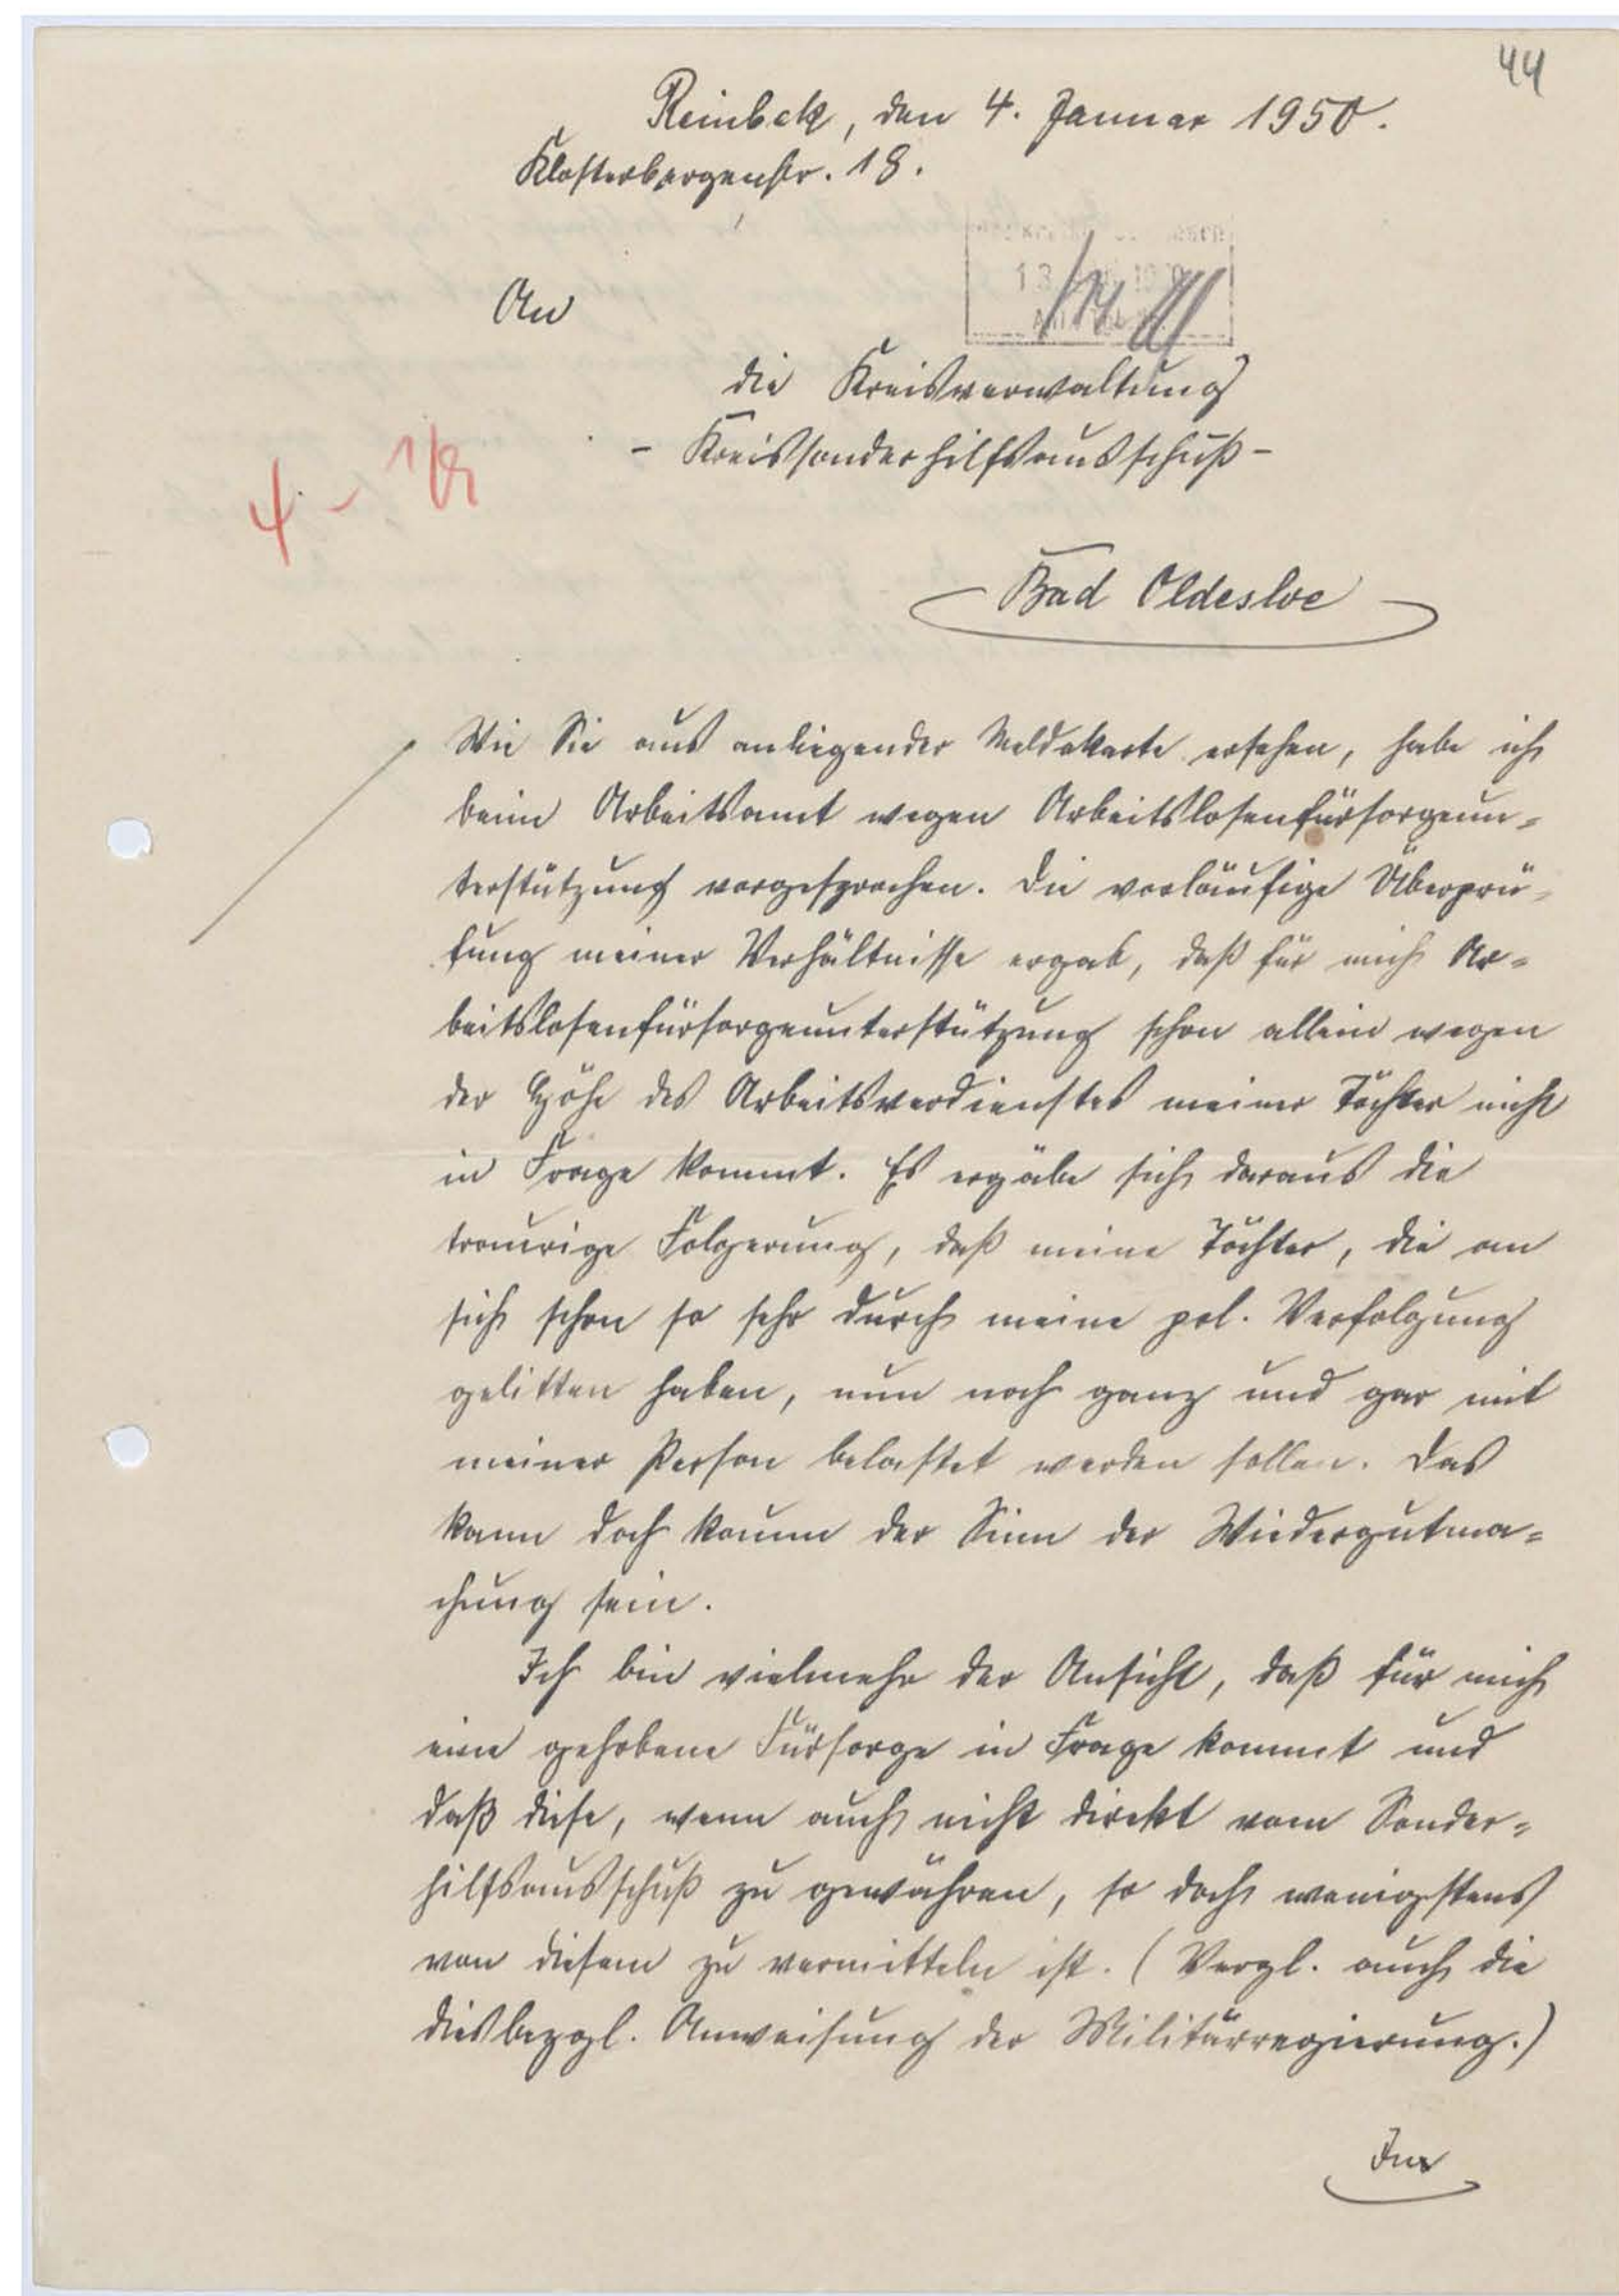 44
Reinbek, den 4. Januar 1950.
Klosterbergenstr. 18.
An
die Kreisverwaltung
- Kreissonderhilfsausschuß -
4 -
Bad Oldesloe
Wie Sie aus anliegender Meldekarte ersehen, habe ich
beim Arbeitsamt wegen Arbeitslosenfürsorgeun-
terstützung vorgesprochen. Die vorläufige Überprü-
fung meiner Verhältnisse ergab, daß für mich Ar-
beitslosenfürsorgeunterstützung schon allein wegen
der Höhe des Arbeitsverdienstes meiner Töchter nicht
in Frage kommt. Es ergäbe sich daraus die
traurige Folgerung, daß meine Töchter, die an
sich schon so sehr durch meine pol. Verfolgung
gelitten haben, nun noch ganz und gar mit
meiner Person belastet werden sollen. Das
kann doch kaum der Sinn der Wiedergutma-
chung sein.
Ich bin vielmehr der Ansicht, daß für mich
eine gehobene Fürsorge in Frage kommt und
daß diese, wenn auch nicht direkt vom Sonder-
hilfsausschuß zu gewähren, so doch wenigstens
von diesem zu vermitteln ist. (Vergl. auch die
diesbezgl. Anweisung der Militärregierung.)